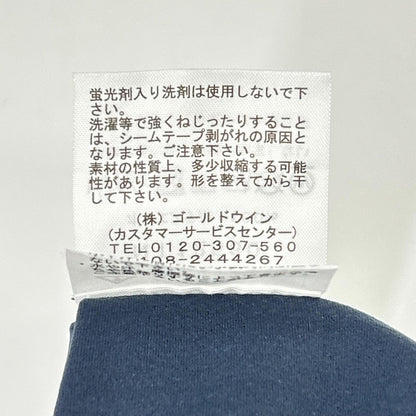 蛍光剤入り洗剤は使用しないで下
さい。
洗濯等で強くねじったりすること
は、シームテープ剥がれの原因と
なります。ご注意下さい。
素材の性質上、多少収縮する可能
性があります。形を整えてから干
して下さい。
(株) ゴールドウイン
(カスタマーサービスセンター)
TEL0120-307-560
108-2444267